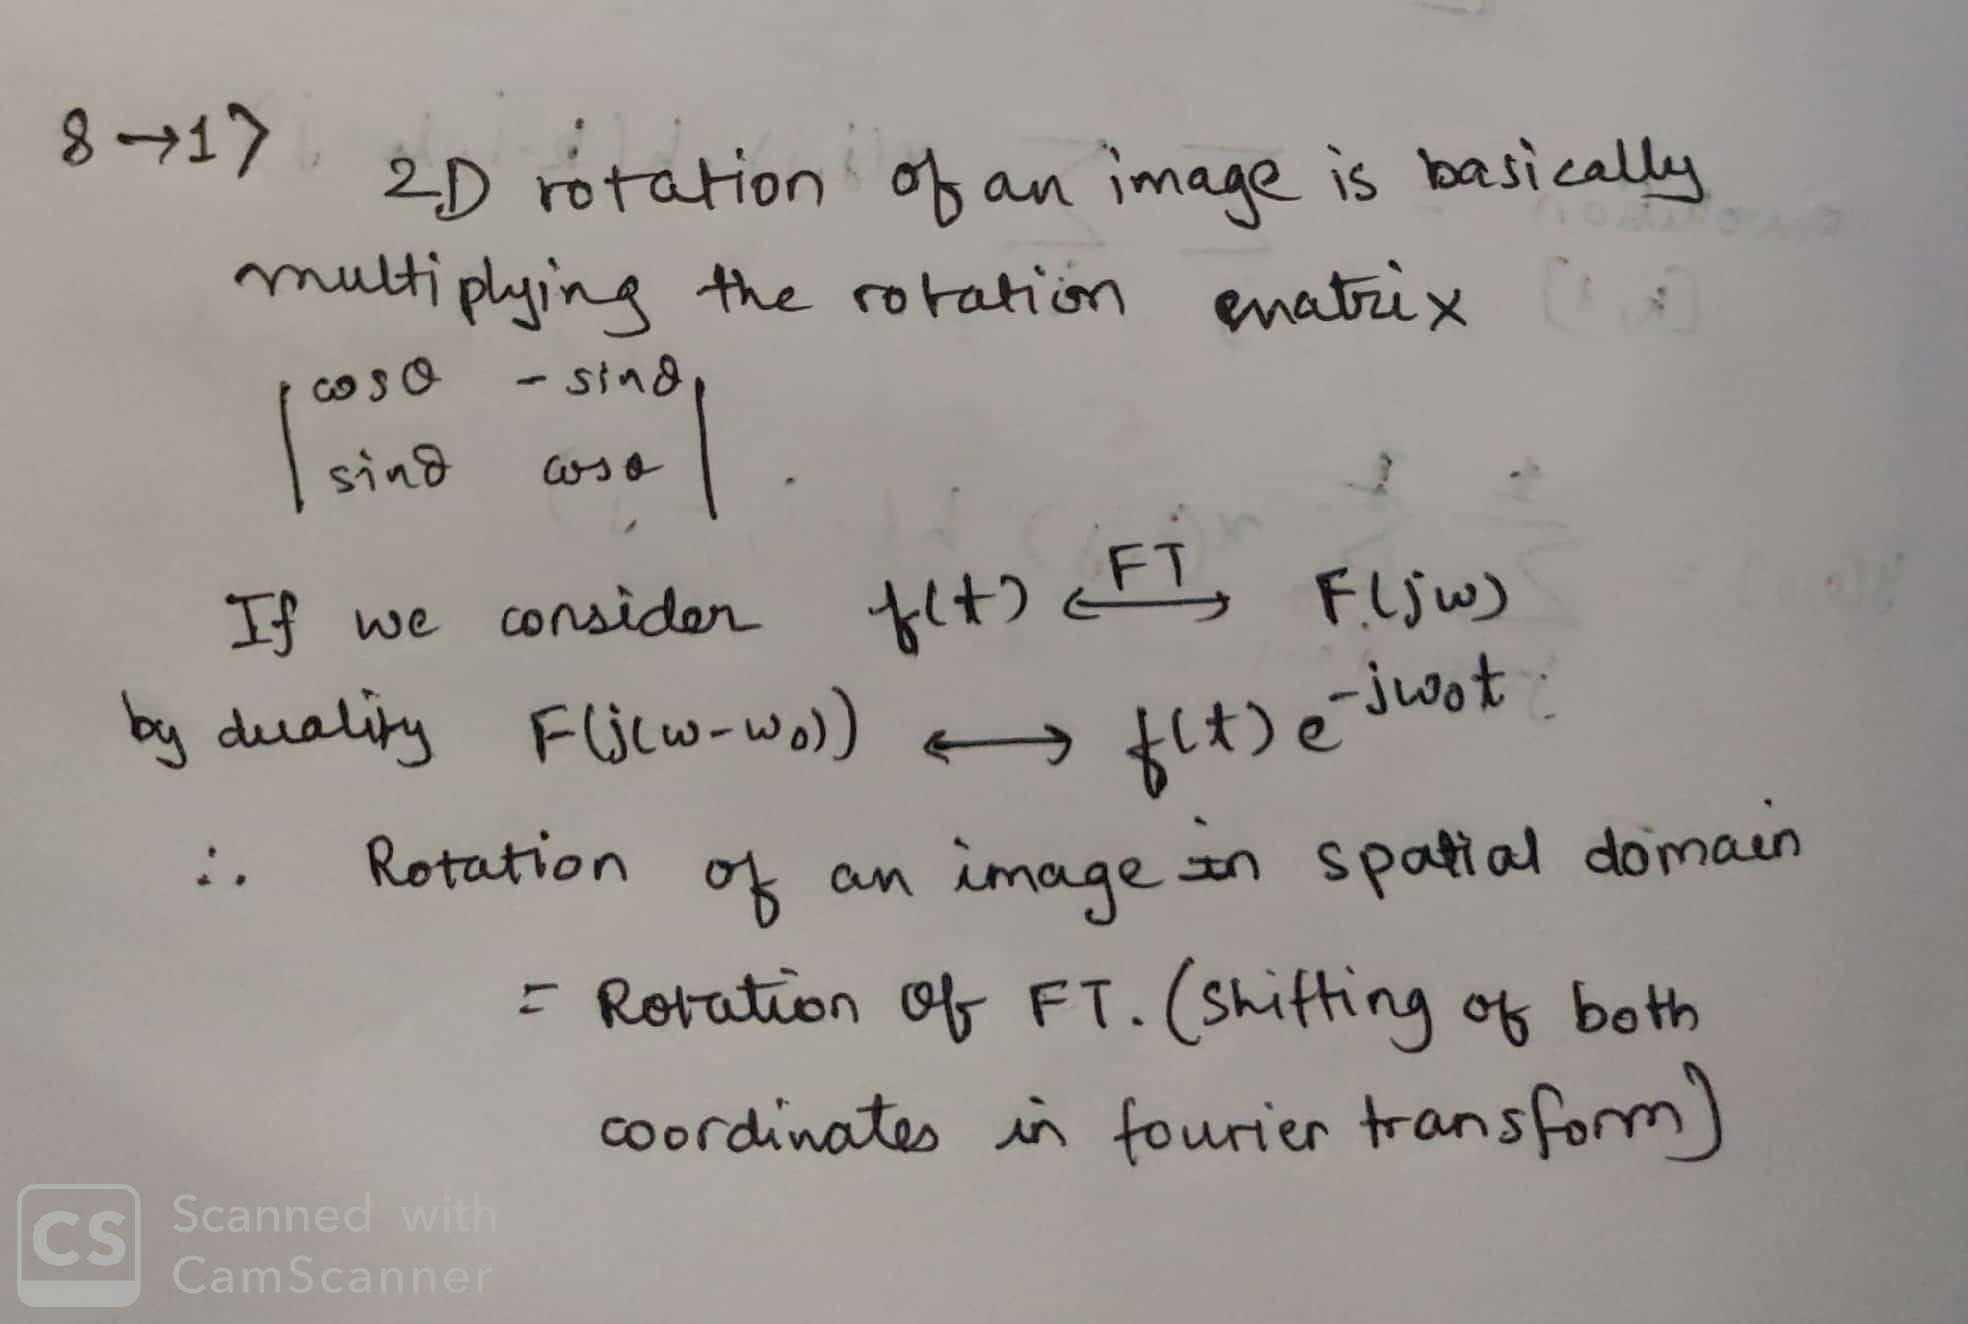 8→1>
2D rotation of an image is basically
multiplying the rotation matrix
| cosθ -sinθ |
| sinθ cosθ | .
If we consider f(t) <-FT-> F(jw)
by duality F(j(w-w₀)) ⟷ f(t) e^-jw₀t
∴ Rotation of an image in spatial domain
= Rotation of FT. (shifting of both
coordinates in fourier transform)
CS Scanned with
CamScanner